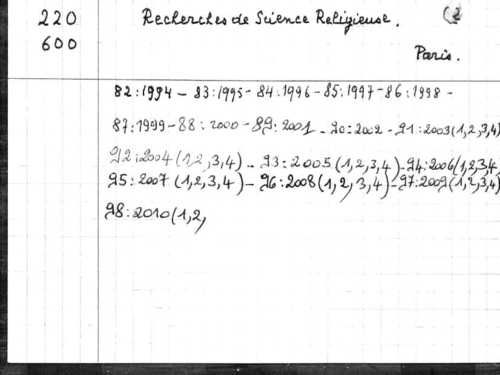 220 Recherches de Science Religieuse. (2
600 Paris.
82:1994 - 83:1995 - 84:1996 - 85:1997 - 86:1998 -
87:1999 - 88:2000 - 89:2001 - 90:2002 - 91:2003(1,2,3,4)
92:2004(1,2,3,4) - 93:2005(1,2,3,4) - 94:2006(1,2,3,4
95:2007(1,2,3,4) - 96:2008(1,2,3,4) - 97:2009(1,2,3,4)
98:2010(1,2,